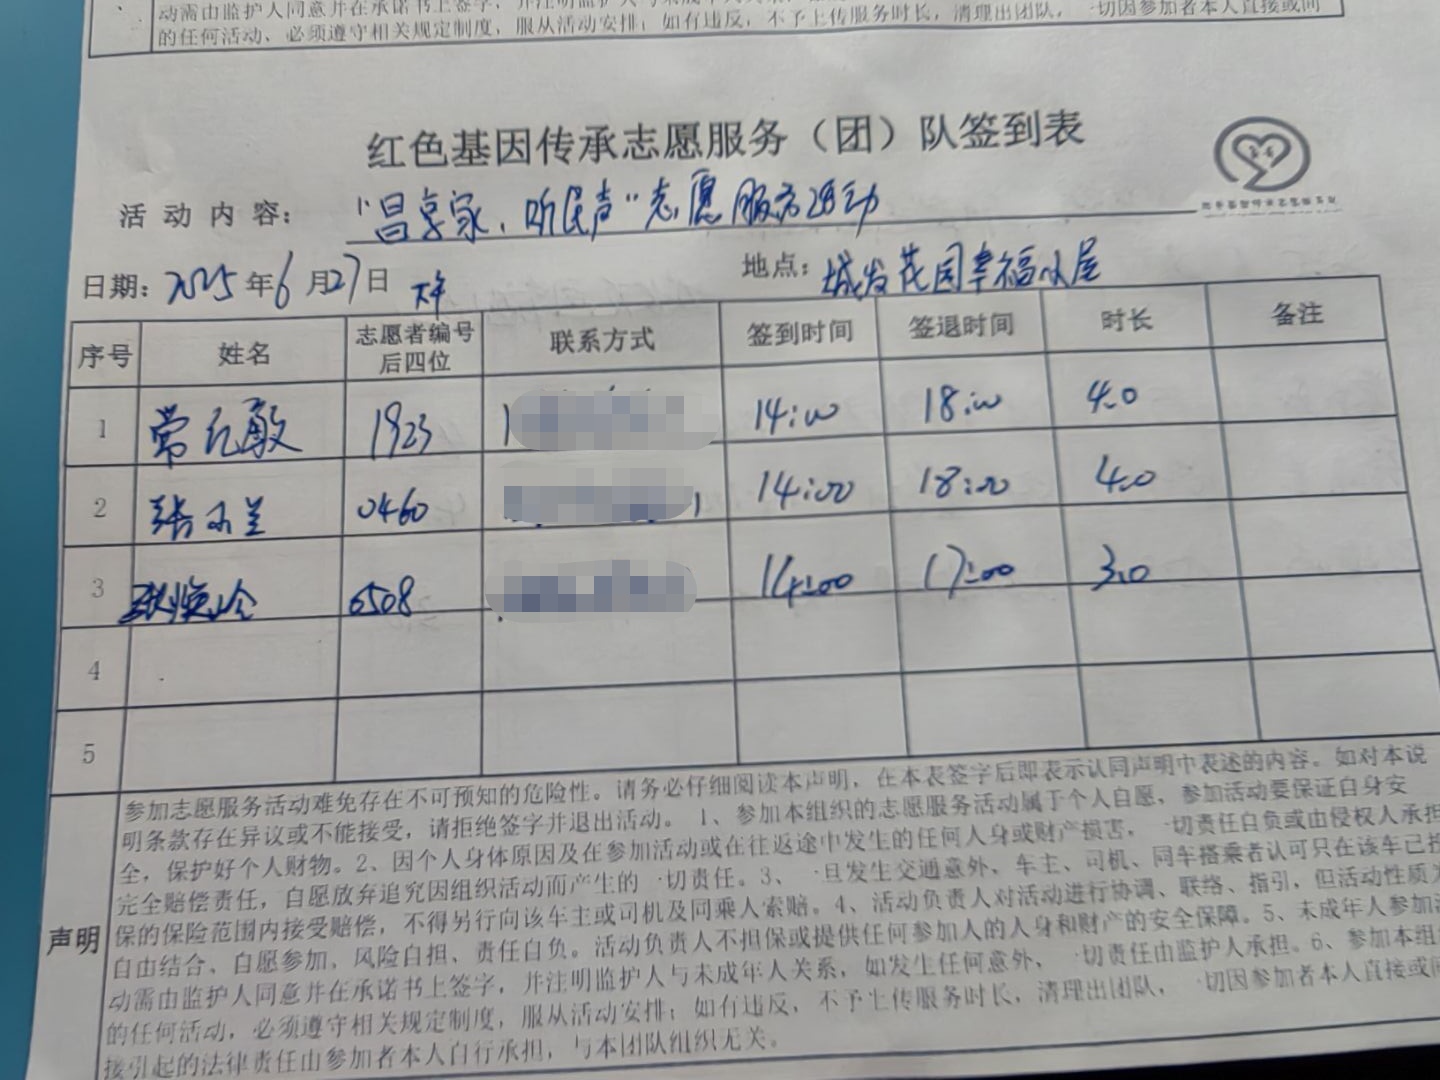 动需由监护人同意并在承诺书上签字，并注明监护人与未成年人关系，
的任何活动、必须遵守相关规定制度，服从活动安排；如有违反，不予上传服务时长，清理出团队，一切因参加者本人直接或间
红色基因传承志愿服务（团）队签到表
活动内容： “昌享家、听民声”志愿服务活动
日期：2025年6月27日 下午 地点：城发花园幸福小屋
序号 姓名 志愿者编号后四位 联系方式 签到时间 签退时间 时长 备注
1 常元敏 1923 1 14:00 18:00 4.0
2 张小兰 0460 1 14:00 18:00 4.0
3 0508 14:00 17:00 3.0
4
5
声明
参加志愿服务活动难免存在不可预知的危险性。请务必仔细阅读本声明，在本表签字后即表示认同声明中表述的内容。如对本说
明条款存在异议或不能接受，请拒绝签字并退出活动。1、参加本组织的志愿服务活动属于个人自愿，参加活动要保证自身安
全，保护好个人财物。2、因个人身体原因及在参加活动或在往返途中发生的任何人身或财产损害，一切责任自负或由侵权人承担
完全赔偿责任，自愿放弃追究因组织活动而产生的一切责任。3、一旦发生交通意外，车主、司机、同车搭乘者认可只在该车已投
保的保险范围内接受赔偿，不得另行向该车主或司机及同乘人索赔。4、活动负责人对活动进行协调、联络、指引，但活动性质为
自由结合、自愿参加、风险自担、责任自负。活动负责人不担保或提供任何参加人的人身和财产的安全保障。5、未成年人参加活
动需由监护人同意并在承诺书上签字，并注明监护人与未成年人关系，如发生任何意外，一切责任由监护人承担。6、参加本组
的任何活动，必须遵守相关规定制度，服从活动安排；如有违反，不予上传服务时长，清理出团队，一切因参加者本人直接或间
接引起的法律责任由参加者本人自行承担，与本团队组织无关。